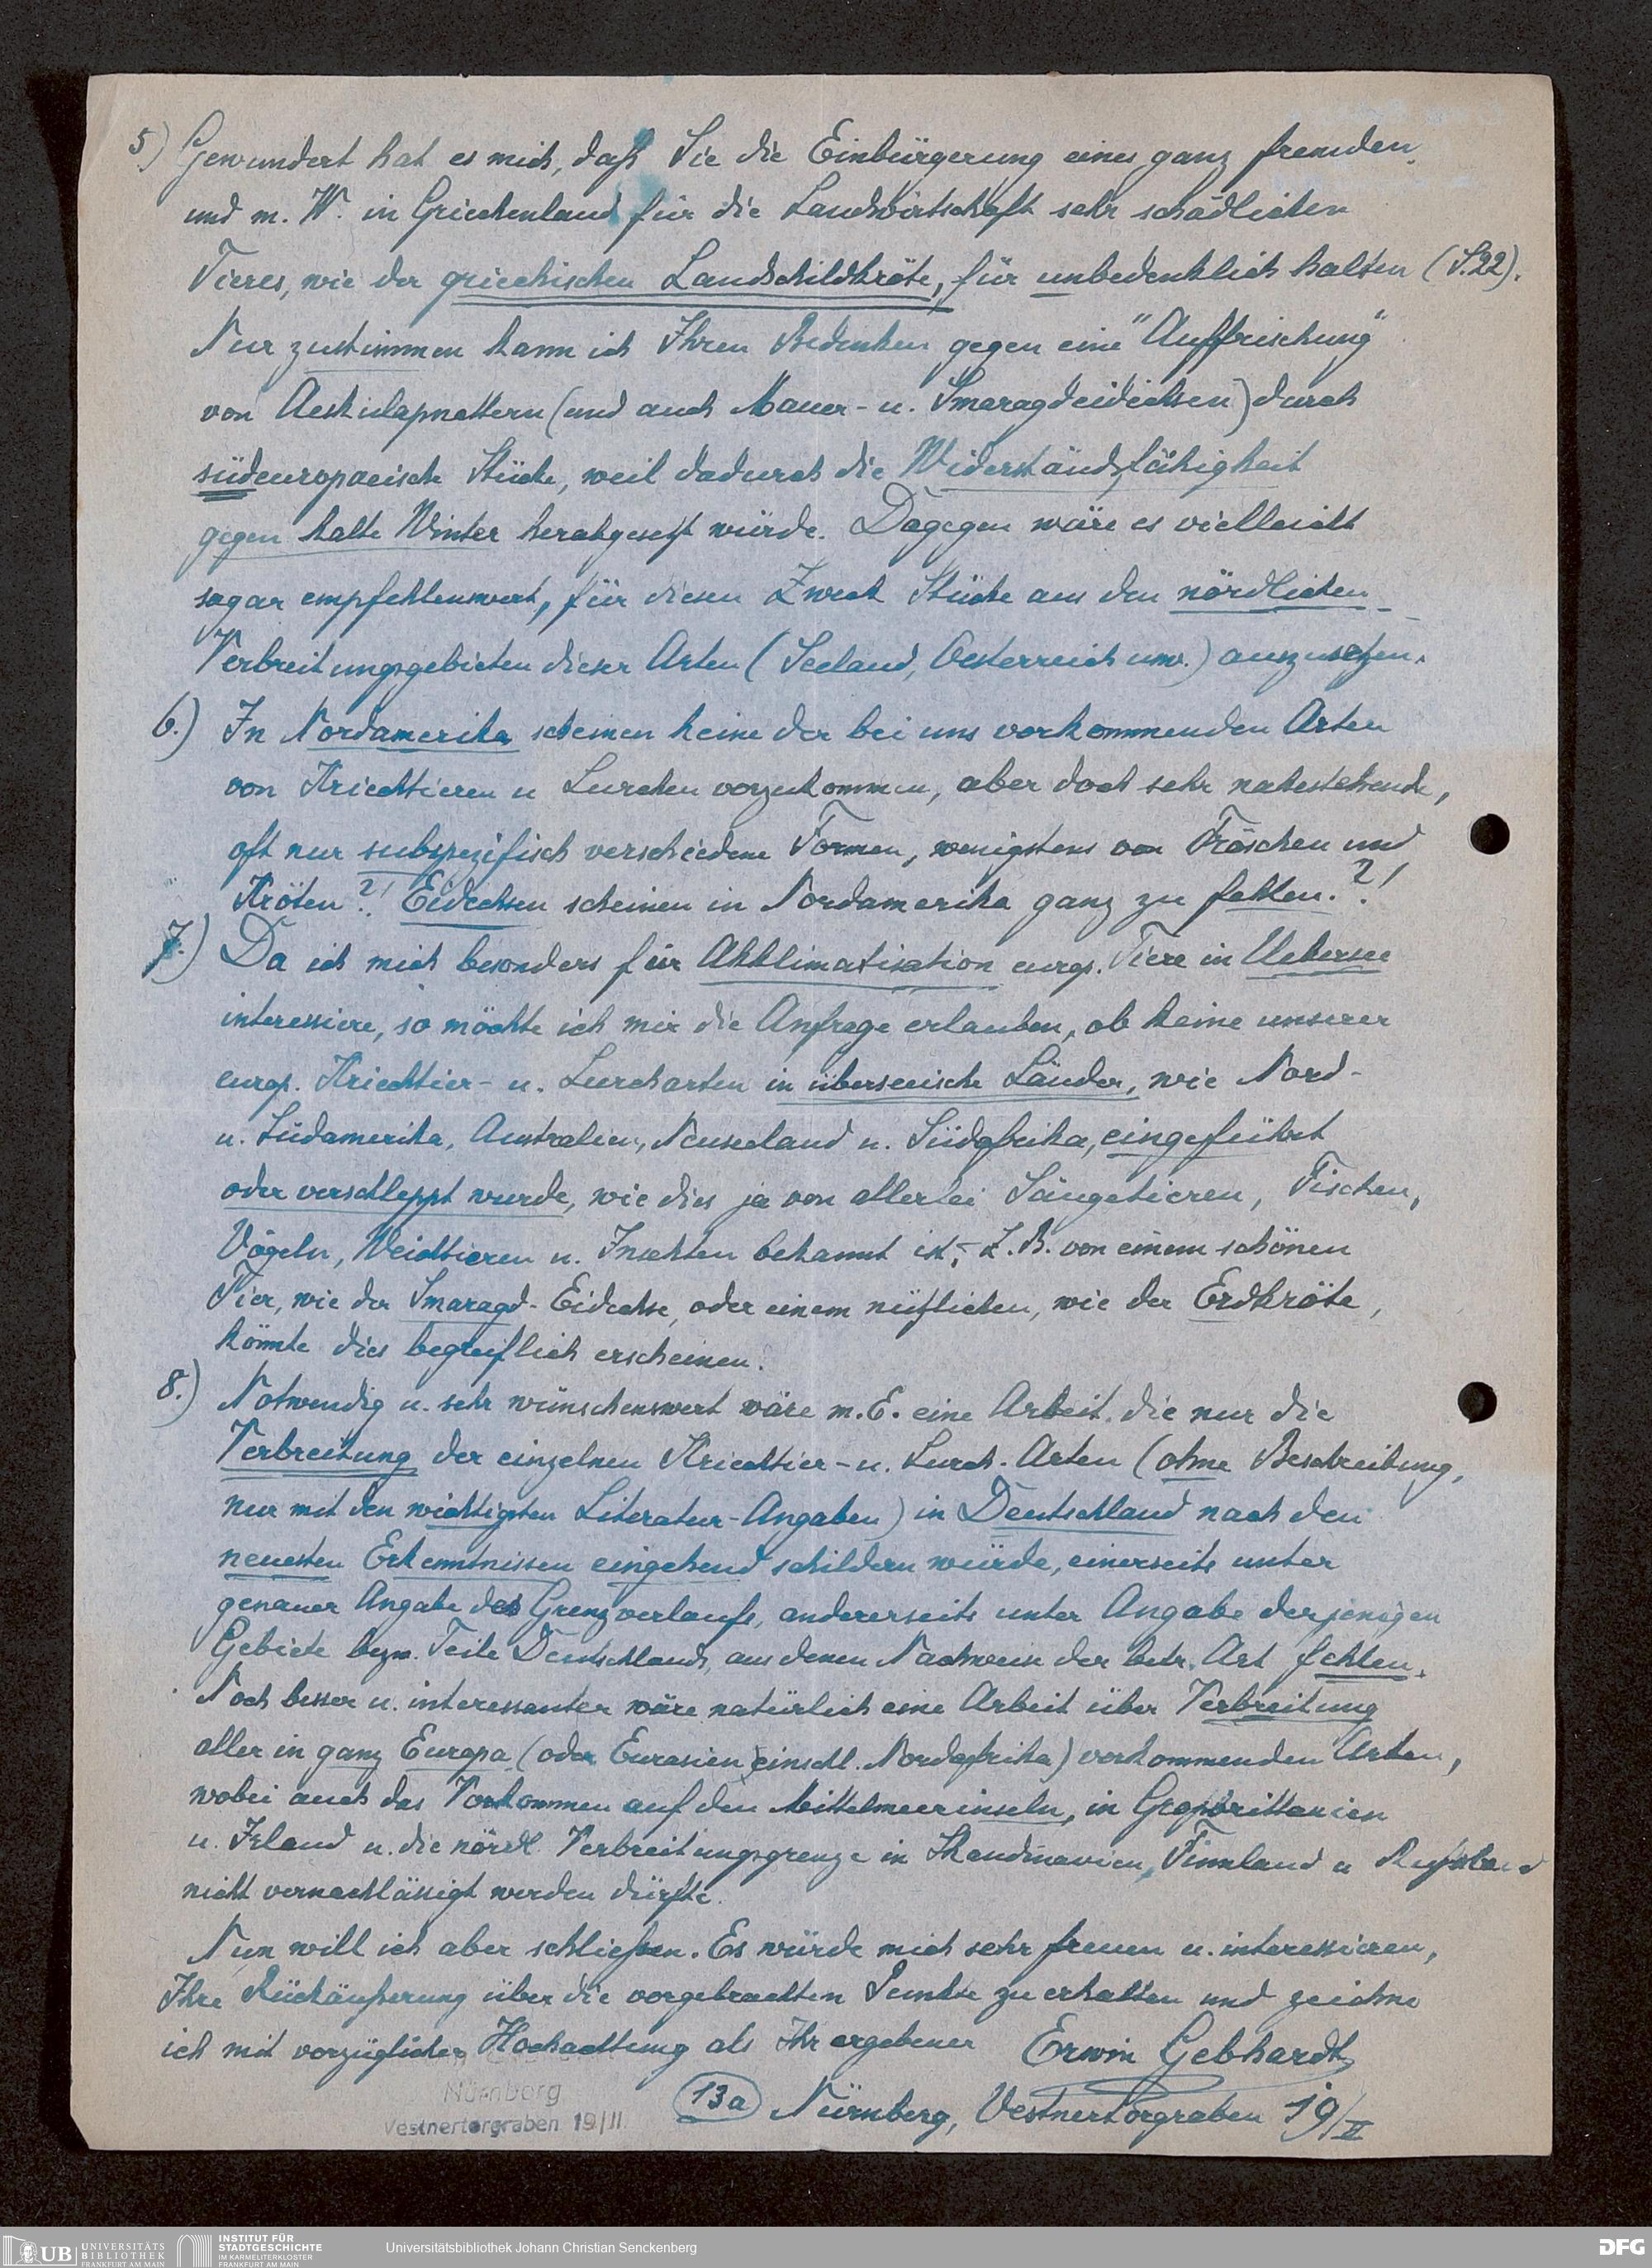 5) Gewundert hat es mich, daß Sie die Einbürgerung eines ganz fremden
und m. W. in Griechenland für die Landwirtschaft sehr schädlichen
Tieres, wie der griechischen Landschildkröte, für unbedenklich halten (S.22).
Nur zustimmen kann ich Ihren Bedenken gegen eine "Auffrischung"
von Aeskulapnattern (und auch Mauer- u. Smaragdeidechsen) durch
südeuropaeische Stücke, weil dadurch die Widerstandsfähigkeit
gegen kalte Winter herabgesetzt würde. Dagegen wäre es vielleicht
sogar empfehlenswert, für diesen Zweck Stücke aus den nördlichen
Verbreitungsgebieten dieser Arten (Seeland, Oesterreich usw.) auszusetzen.
6.) In Nordamerika scheinen keine der bei uns vorkommenden Arten
von Kriechtieren u Lurchen vorzukommen, aber doch sehr nahestehende,
oft nur subspezifisch verschiedene Formen, wenigstens von Fröschen und
Kröten?! Eidechsen scheinen in Nordamerika ganz zu fehlen.?!
7.) Da ich mich besonders für Akklimatisation europ. Tiere in Uebersee
interessiere, so möchte ich mir die Anfrage erlauben, ob keine unserer
europ. Kriechtier- u. Lurcharten in überseeische Länder, wie Nord-
u. Südamerika, Australien, Neuseeland u. Südafrika, eingeführt
oder verschleppt wurde, wie dies ja von allerlei Säugetieren, Fischen,
Vögeln, Weichtieren u. Insekten bekannt ist,- z.B. von einem schönen
Tier, wie der Smaragd-Eidechse, oder einem nützlichen, wie der Erdkröte,
könnte dies begreiflich erscheinen.
8.) Notwendig u. sehr wünschenswert wäre m.E. eine Arbeit, die nur die
Verbreitung der einzelnen Kriechtier- u. Lurch-Arten (ohne Beschreibung,
nur mit den wichtigsten Literatur-Angaben) in Deutschland nach den
neuesten Erkenntnissen eingehend schildern würde, einerseits unter
genauer Angabe des Grenzverlaufs, andererseits unter Angabe derjenigen
Gebiete bezw. Teile Deutschlands, aus denen Nachweise der betr. Art fehlen.
Noch besser u. interessanter wäre natürlich eine Arbeit über Verbreitung
aller in ganz Europa (oder Eurasien einschl. Nordafrika) vorkommenden Arten,
wobei auch das Vorkommen auf den Mittelmeerinseln, in Großbrittanien
u. Irland u. die nördl. Verbreitungsgrenze in Skandinavien, Finnland u Rußland
nicht vernachlässigt werden dürfte.
Nun will ich aber schließen. Es würde mich sehr freuen u. interessieren,
Ihre Rückäußerung über die vorgebrachten Punkte zu erhalten und zeichne
ich mit vorzüglicher Hochachtung als Ihr ergebener Erwin Gebhardt
13a Nürnberg, Vestnertorgraben 19/II
Nürnberg
Vestnertorgraben 19/II.
UB UNIVERSITÄTS BIBLIOTHEK FRANKFURT AM MAIN
INSTITUT FÜR STADTGESCHICHTE IM KARMELITERKLOSTER FRANKFURT AM MAIN
Universitätsbibliothek Johann Christian Senckenberg
DFG